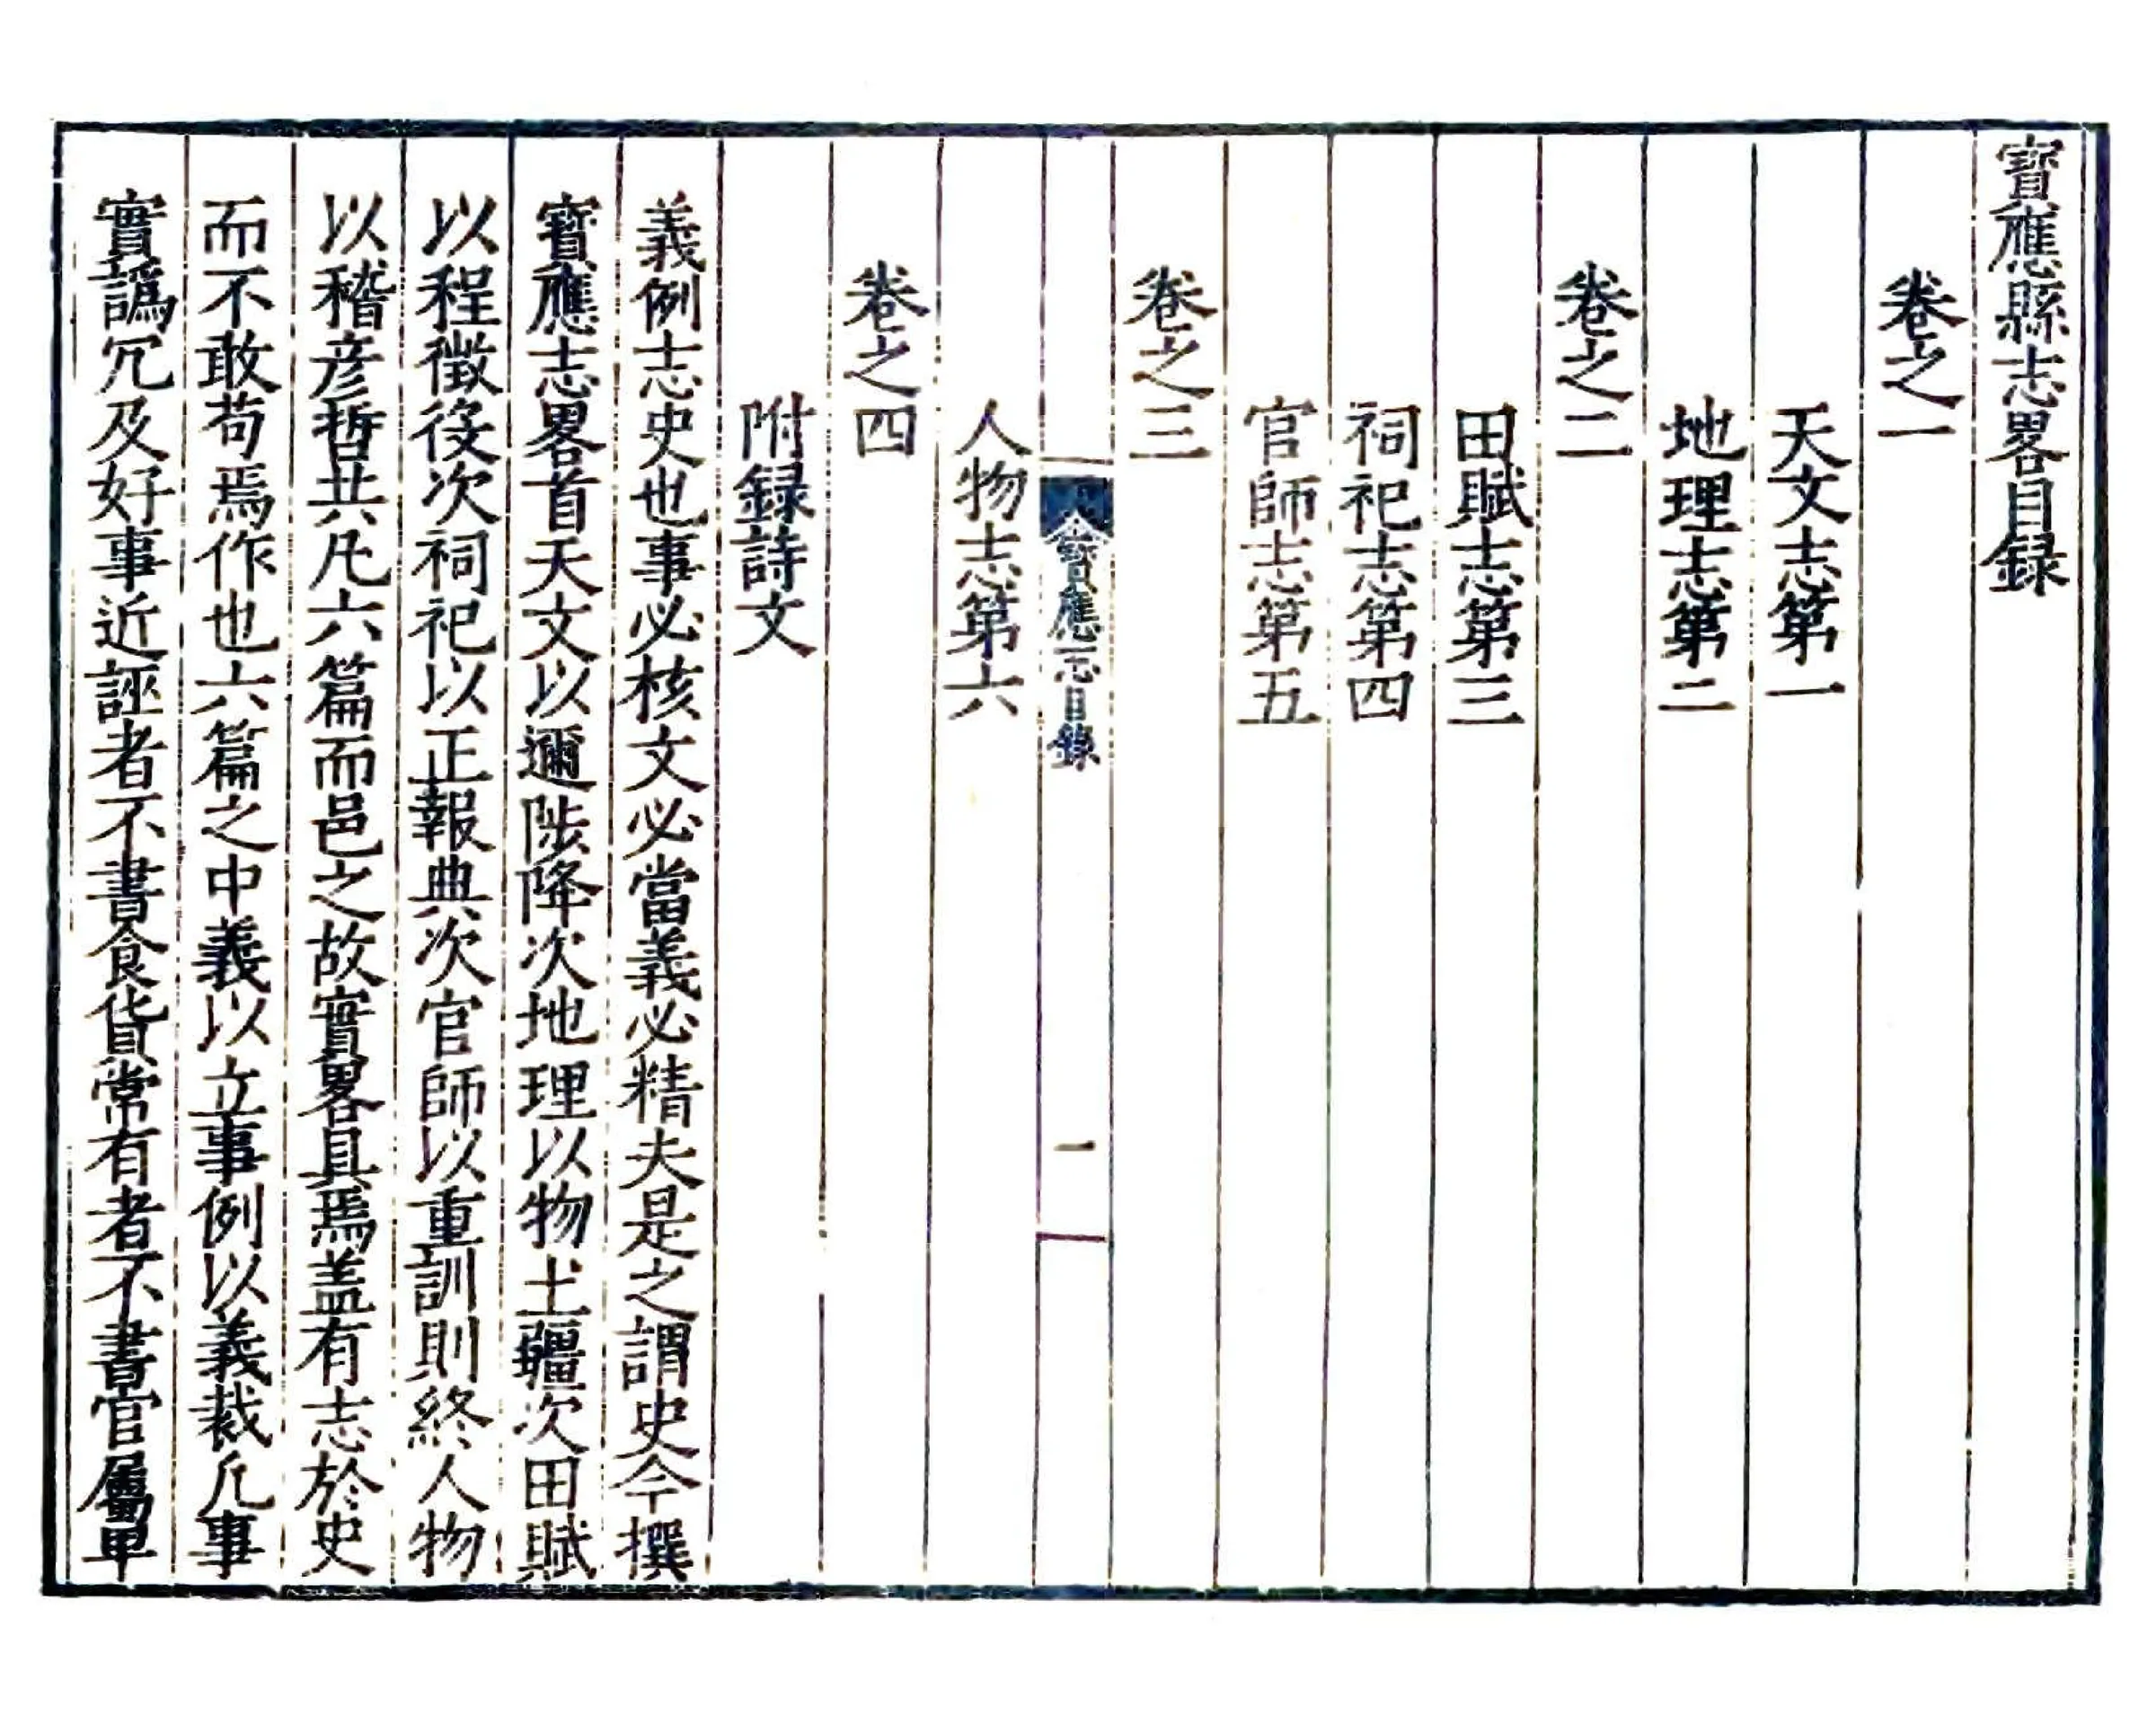 寳應縣志畧目録
卷之一
天文志第一
地理志第二
卷之二
田賦志第三
祠祀志第四
官師志第五
卷之三
寳應志目錄
一
人物志第六
卷之四
附録詩文
義例志史也事必核文必當義必精夫是之謂史今撰
寳應志畧首天文以邇陟降次地理以物土疆次田賦
以程徵役次祠祀以正報典次官師以重訓則終人物
以稽彦哲共凡六篇而邑之故實畧具焉盖有志於史
而不敢苟焉作也六篇之中義以立事例以義裁凡事
實譌冗及好事近誣者不書食貨常有者不書官屬卑